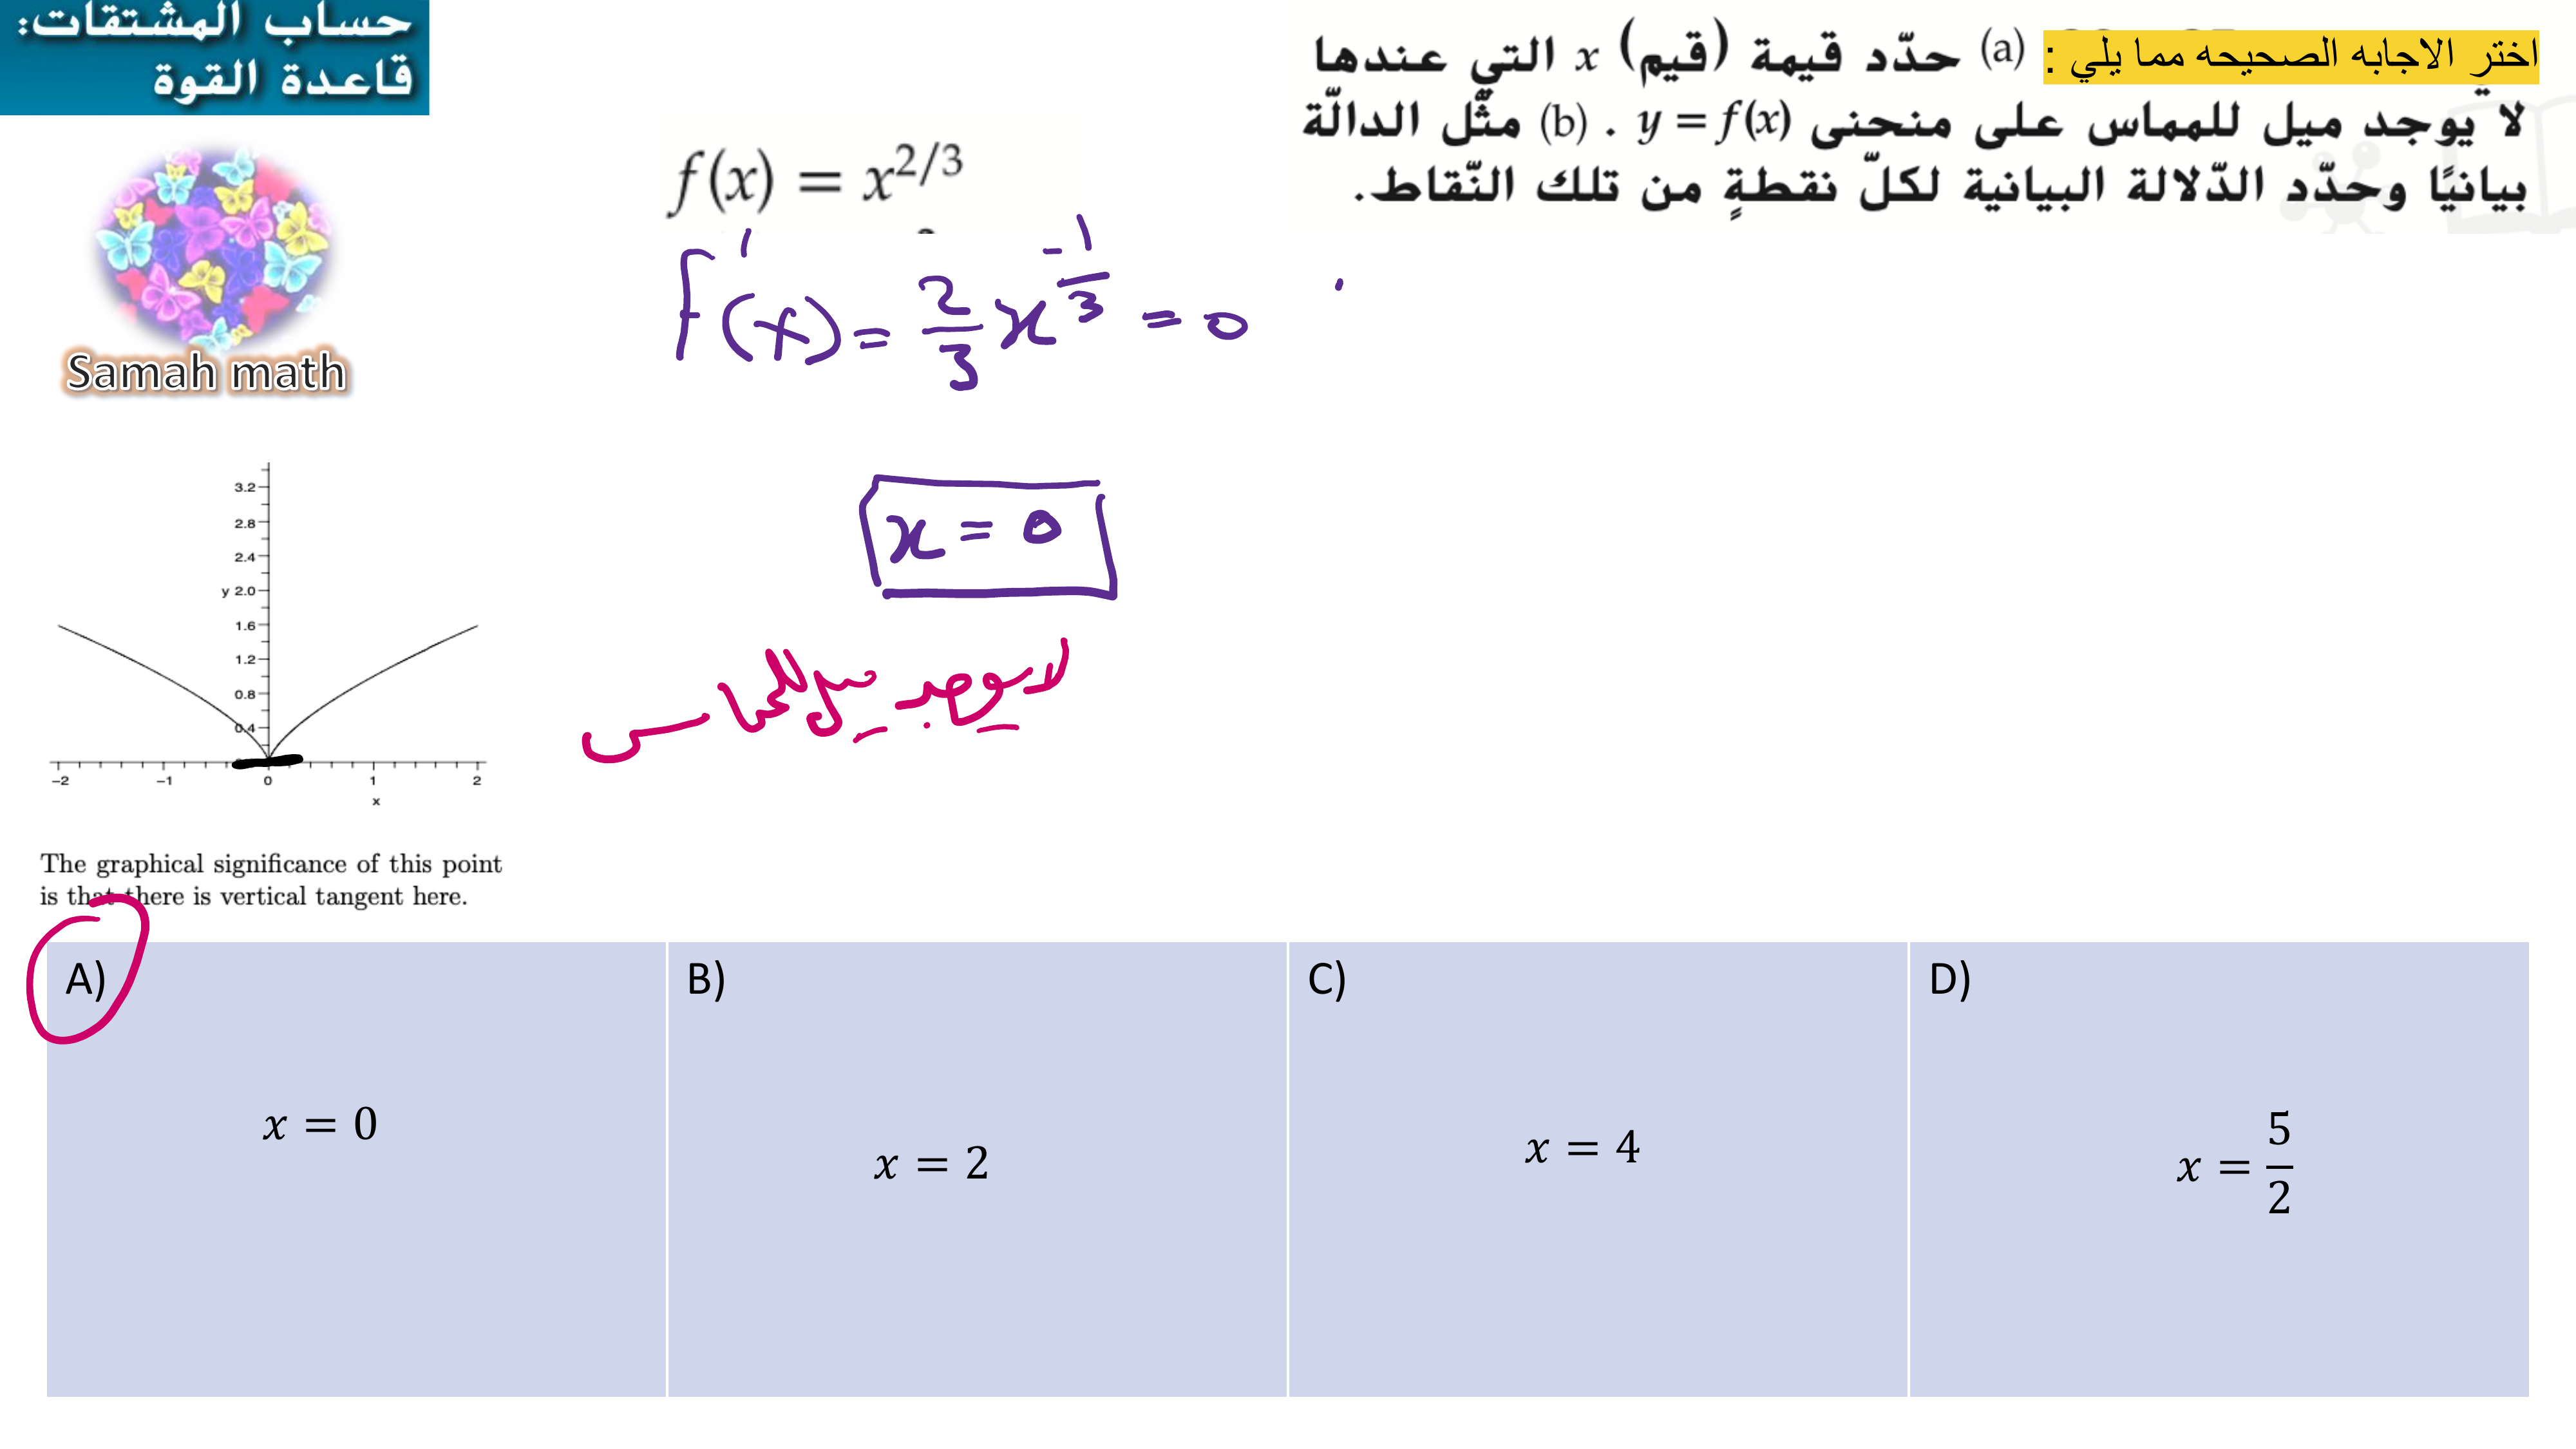 حساب المشتقات:
قاعدة القوة
اختر الاجابه الصحيحه مما يلي :
(a) حدّد قيمة (قيم) x التي عندها
لا يوجد ميل للمماس على منحنى y = f(x) . (b) مثّل الدالّة
بيانيًا وحدّد الدّلالة البيانية لكلّ نقطةٍ من تلك النّقاط.
Samah math
f(x) = x^{2/3}
f'(x) = \frac{2}{3} x^{-\frac{1}{3}} = 0
x = 0
لا يوجد ميل للمماس
3.2
2.8
2.4
y 2.0
1.6
1.2
0.8
0.4
-2 -1 0 1 2
x
The graphical significance of this point
is that there is vertical tangent here.
A)
x = 0
B)
x = 2
C)
x = 4
D)
x = \frac{5}{2}